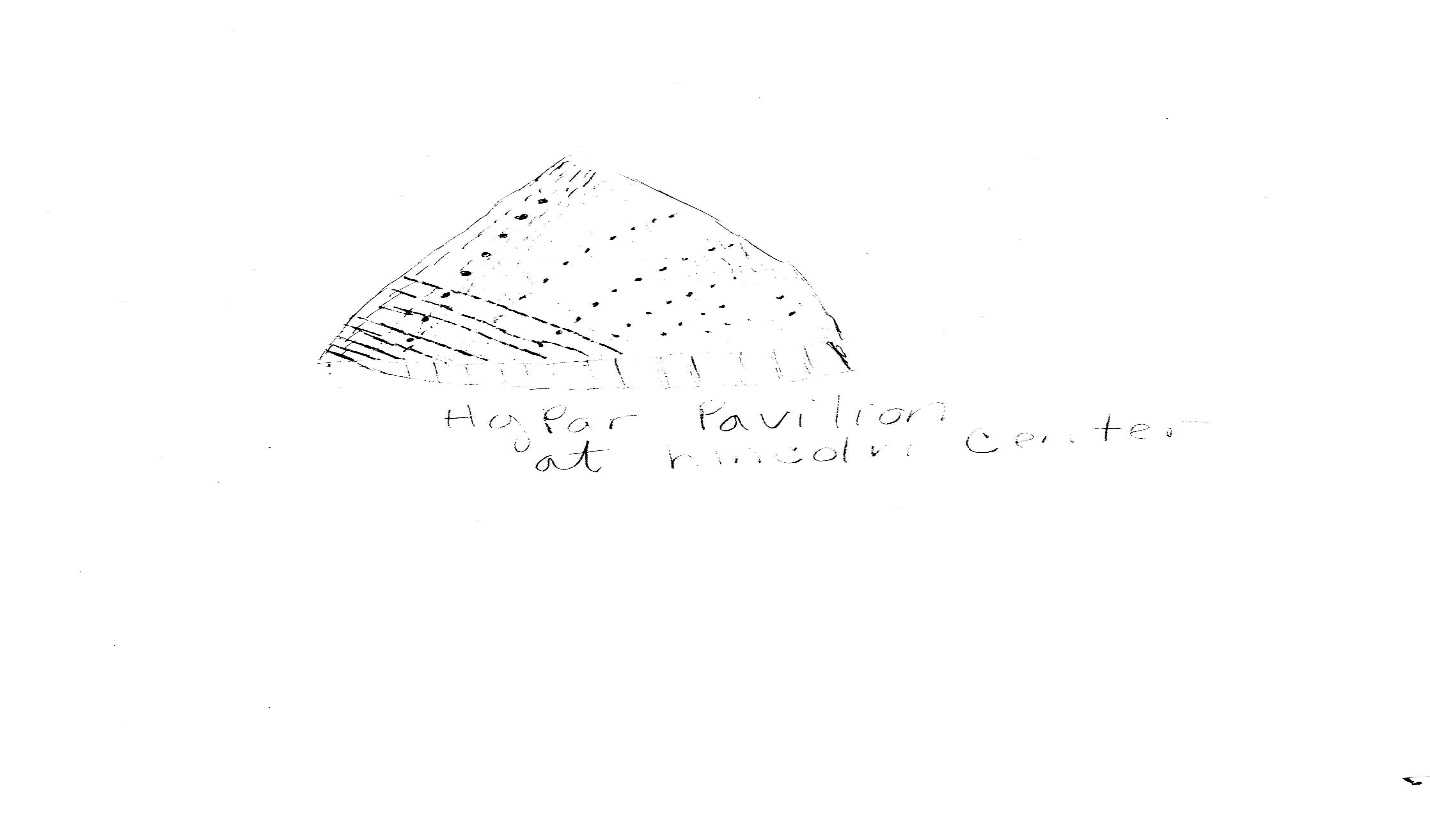 HyPar Pavilion
at Lincoln Center